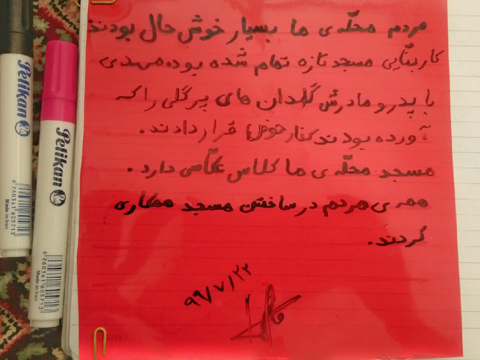 مردم محله‌ی ما بسیار خوش حال بودند
کار بنّایی مسجد تازه تمام شده بود مهدی
با پدر و مادرش گلدان های پر گلی را که
آورده بودند کنار حوض قرار دادند.
مسجد محلّه‌ی ما کلاس عکّاسی دارد.
همه‌ی مردم در ساختن مسجد همکاری
کردند.
۹۹/۷/۲۲
Pelikan
Made in Iran
Pelikan
Made in Iran
6260341405713